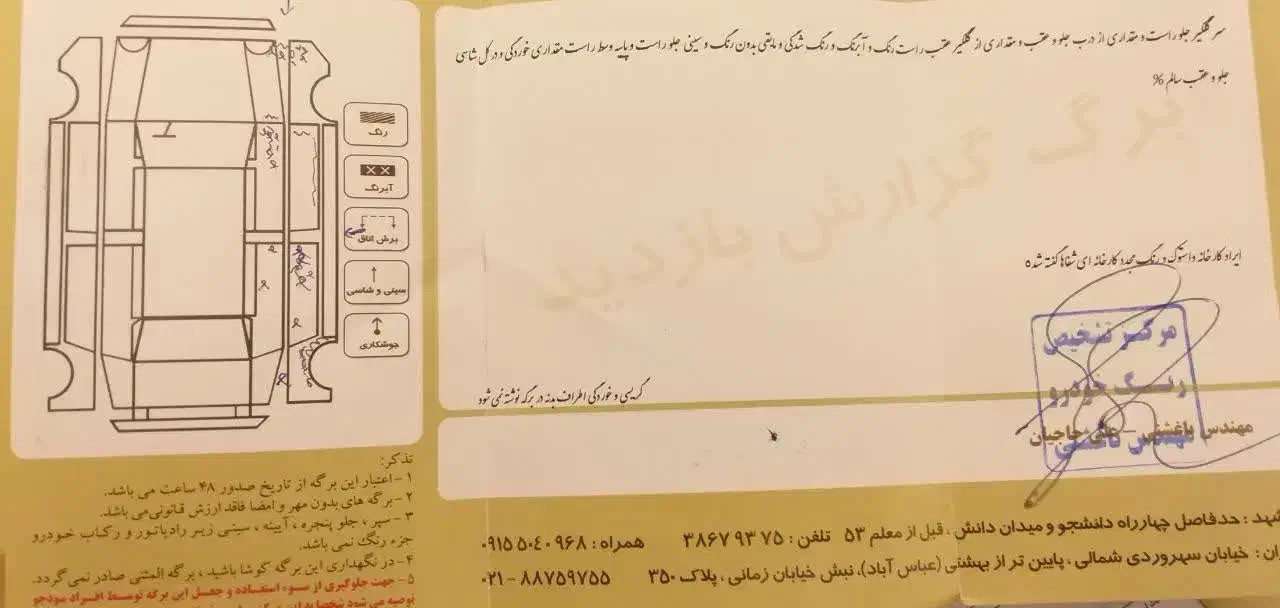 سرگلگیر جلو راست و مقداری از درب جلو و عقب و مقداری از گلگیر عقب راست رنگ و آبرنگ و رنگ شدگی و مابقی بدون رنگ و سینی جلو راست و پایه وسط راست مقداری خوردگی و در کل شاسی
جلو و عقب سالم %
برگ گزارش بازدید
ایراد کارخانه و استوک و رنگ مجدد کارخانه ای شفاها گفته شده
مرکز تشخیص
رنگ خودرو
مهندس باغشنی
گریسی و خوردگی اطراف بدنه در برگه نوشته نمی شود
مهندس باغشنی - علی حاجیان
رنگ
آبرنگ
برش اتاق
سینی و شاسی
جوشکاری
تذکر:
۱- اعتبار این برگه از تاریخ صدور ۴۸ ساعت می باشد.
۲- برگه های بدون مهر و امضا فاقد ارزش قانونی می باشد.
۳- سپر ، جلو پنجره ، آیینه ، سینی زیر رادیاتور و رکاب خودرو
جزء رنگ نمی باشد.
۴- در نگهداری این برگه کوشا باشید ، برگه المثنی صادر نمی گردد.
۵- جهت جلوگیری از سوء استفاده و جعل این برگه توسط افراد سودجو
توصیه می شود شخصا به
شهد : حدفاصل چهارراه دانشجو و میدان دانش ، قبل از معلم ۵۳ تلفن : ۷۵ ۹۳ ۳۸۶۷ همراه : ۹۶۸ ۵۰۴۰ ۰۹۱۵
ان : خیابان سهروردی شمالی ، پایین تر از بهشتی (عباس آباد)، نبش خیابان زمانی ، پلاک ۳۵۰ ۸۸۷۵۹۷۵۵ - ۰۲۱